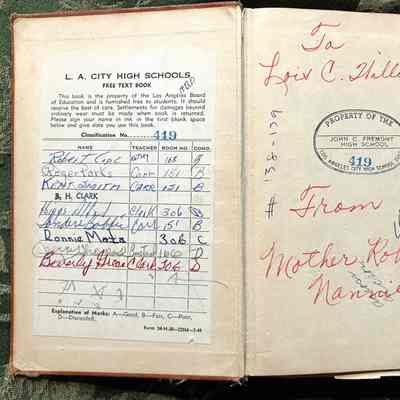 L. A. CITY HIGH SCHOOLS
FREE TEXT BOOK
This book is the property of the Los Angeles Board
of Education and is furnished free to students. It should
receive the best of care. Settlements for damages beyond
ordinary wear must be made when book is returned.
Please sign your name in ink in the first blank space
below and give date you use this book.
Classification No. 419
NAME TEACHER ROOM NO. COND.
Robert 168 B
Roger Parks Carr 151 B
KENT SMITH CARR 151 B
B. H. CLARK
Clark 306 B
Carr 151 B
Ronnie Mata 306 C
166 D
Beverly Clark 306 D
Explanation of Marks: A—Good, B—Fair, C—Poor,
D—Discarded.
To
Lois C. Hills
# 138-139
PROPERTY OF THE
JOHN C. FREMONT
HIGH SCHOOL
419
LOS ANGELES CITY HIGH SCHOOL
From
Mother
Nannie